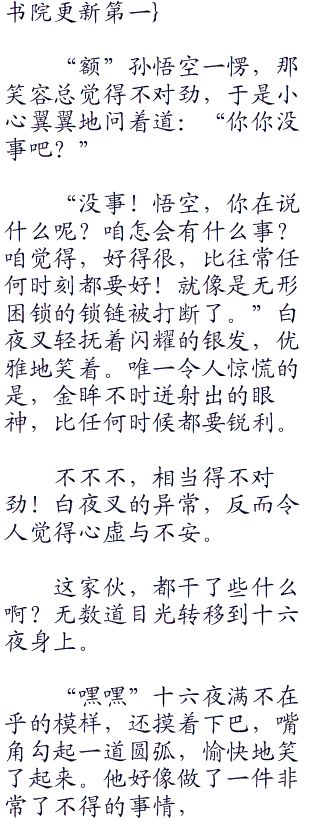 书院更新第一}
“额”孙悟空一愣，那
笑容总觉得不对劲，于是小
心翼翼地问着道：“你你没
事吧？”
“没事！悟空，你在说
什么呢？咱怎会有什么事？
咱觉得，好得很，比往常任
何时刻都要好！就像是无形
困锁的锁链被打断了。”白
夜叉轻抚着闪耀的银发，优
雅地笑着。唯一令人惊慌的
是，金眸不时迸射出的眼
神，比任何时候都要锐利。
不不不，相当得不对
劲！白夜叉的异常，反而令
人觉得心虚与不安。
这家伙，都干了些什么
啊？无数道目光转移到十六
夜身上。
“嘿嘿”十六夜满不在
乎的模样，还摸着下巴，嘴
角勾起一道圆弧，愉快地笑
了起来。他好像做了一件非
常了不得的事情，